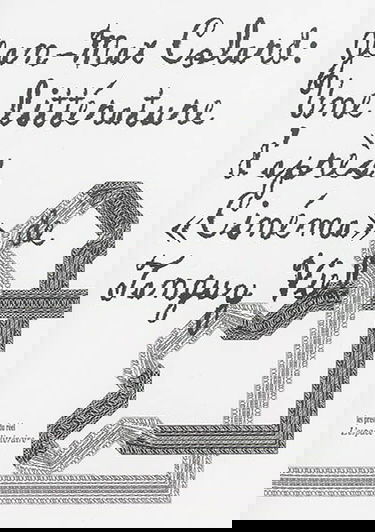 Jean-Max Colard:
Une Littérature
d'après
«Cinéma» de
Tanguy Viel
les presses du réel
L'espace littéraire